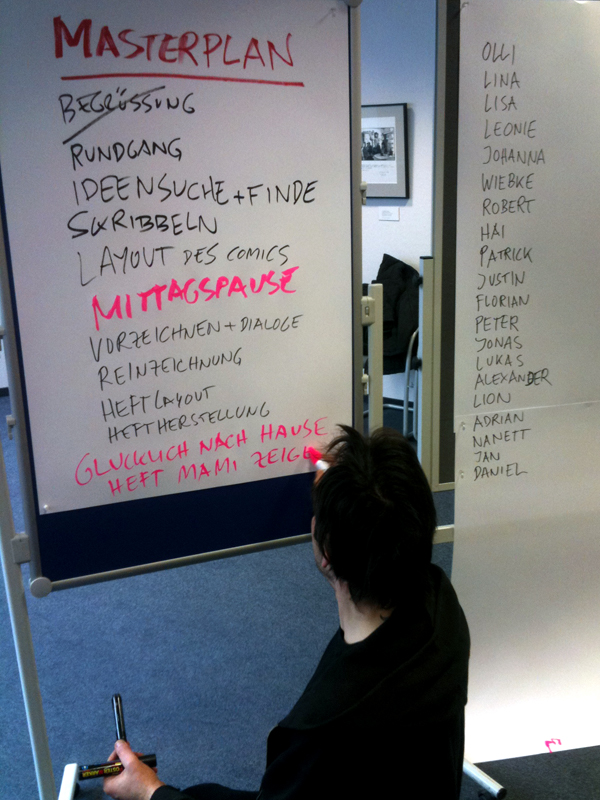 MASTERPLAN
BEGRÜSSUNG
RUNDGANG
IDEENSUCHE + FINDE
SKRIBBELN
LAYOUT DES COMICS
MITTAGSPAUSE
VORZEICHNEN + DIALOGE
REINZEICHNUNG
HEFTLAYOUT
HEFTHERSTELLUNG
GLÜCKLICH NACH HAUSE
HEFT MAMI ZEIGE
OLLI
LINA
LISA
LEONIE
JOHANNA
WIEBKE
ROBERT
HAI
PATRICK
JUSTIN
FLORIAN
PETER
JONAS
LUKAS
ALEXANDER
LION
ADRIAN
NANETT
JAN
DANIEL